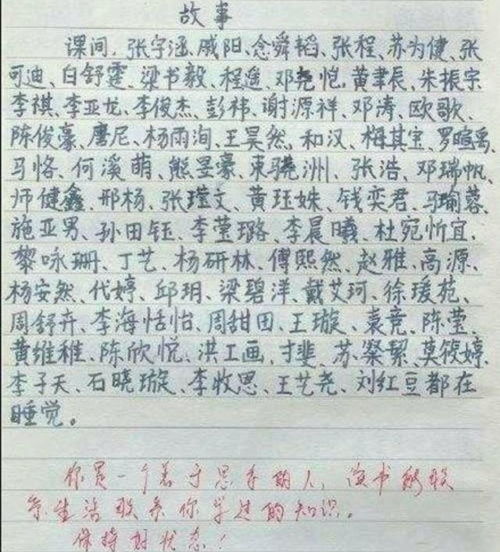 故事
课间,张宇涵、戚阳、念舜韬、张程、苏为健、张
可迪、白舒雯、梁书毅、程遥、邓尧恺、黄聿辰、朱振宇
李祺、李亚龙、李俊杰、彭祎、谢源祥、邓涛、欧歌、
陈俊豪、唐尼、杨雨洵、王昊然、和汉、梅其宝、罗暄禹、
马恪、何溪萌、熊昱豪、束骁洲、张浩、邓瑞帆、
师健鑫、邢杨、张瑾文、黄珏姝、钱奕君、马瑜蓉、
施亚男、孙田钰、李莹璐、李晨曦、杜宛忻宜、
黎咏珊、丁艺、杨研林、傅熙然、赵雅、高源、
杨安然、代婷、邱玥、梁碧洋、戴艾珂、徐瑗苑、
周舒卉、李海恬怡、周甜田、王璇、袁竞、陈莹、
黄维稚、陈欣悦、洪工画、才斐、苏、粲絮、莫筱婷、
李子天、石晓璇、李牧思、王艺尧、刘红豆都在
睡觉。
你是一个善于思考的人,读书能联
系生活联系你学过的知识。
保持好状态!